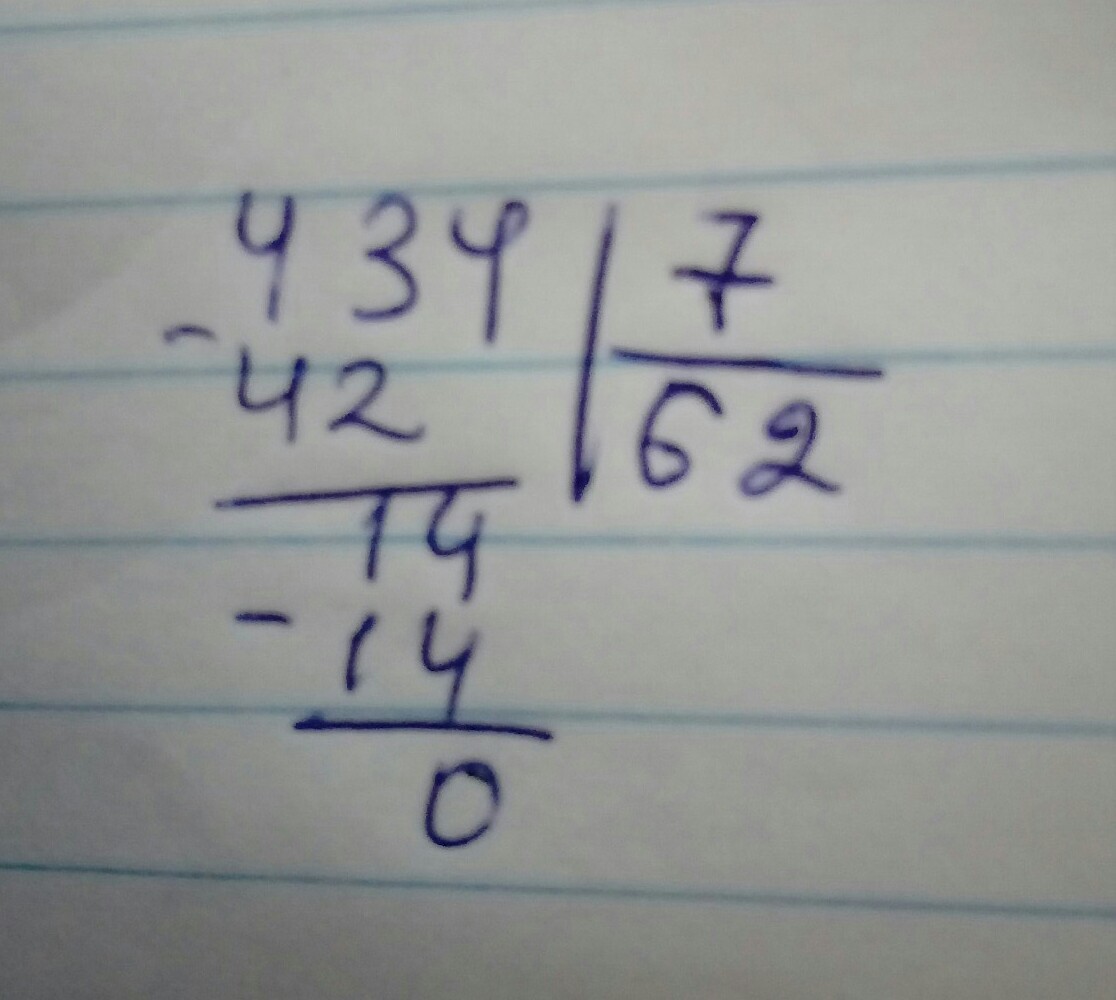 434 7
- 42 62
14
- 14
0